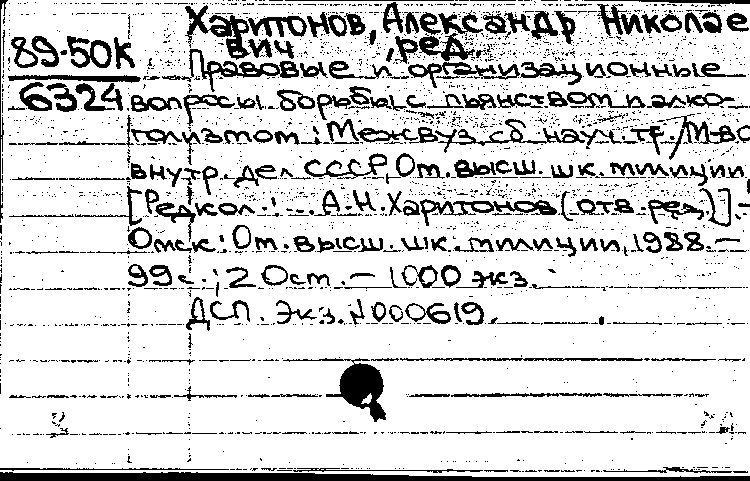 Харитонов, Александр Николае
вич , ред.
89-50К
Правовые и организационные
6324 вопросы борьбы с пьянством и алко-
голизмом : Межвуз. сб. науч. тр. / М-во
внутр. дел СССР, Ом. высш. шк. милиции,
[Редкол.: ... А.Н. Харитонов (отв. ред.)]. -
Омск : Ом. высш. шк. милиции, 1988. -
99 с. ; 20 см. - 1000 экз.
ДСП. Экз. N 000619.